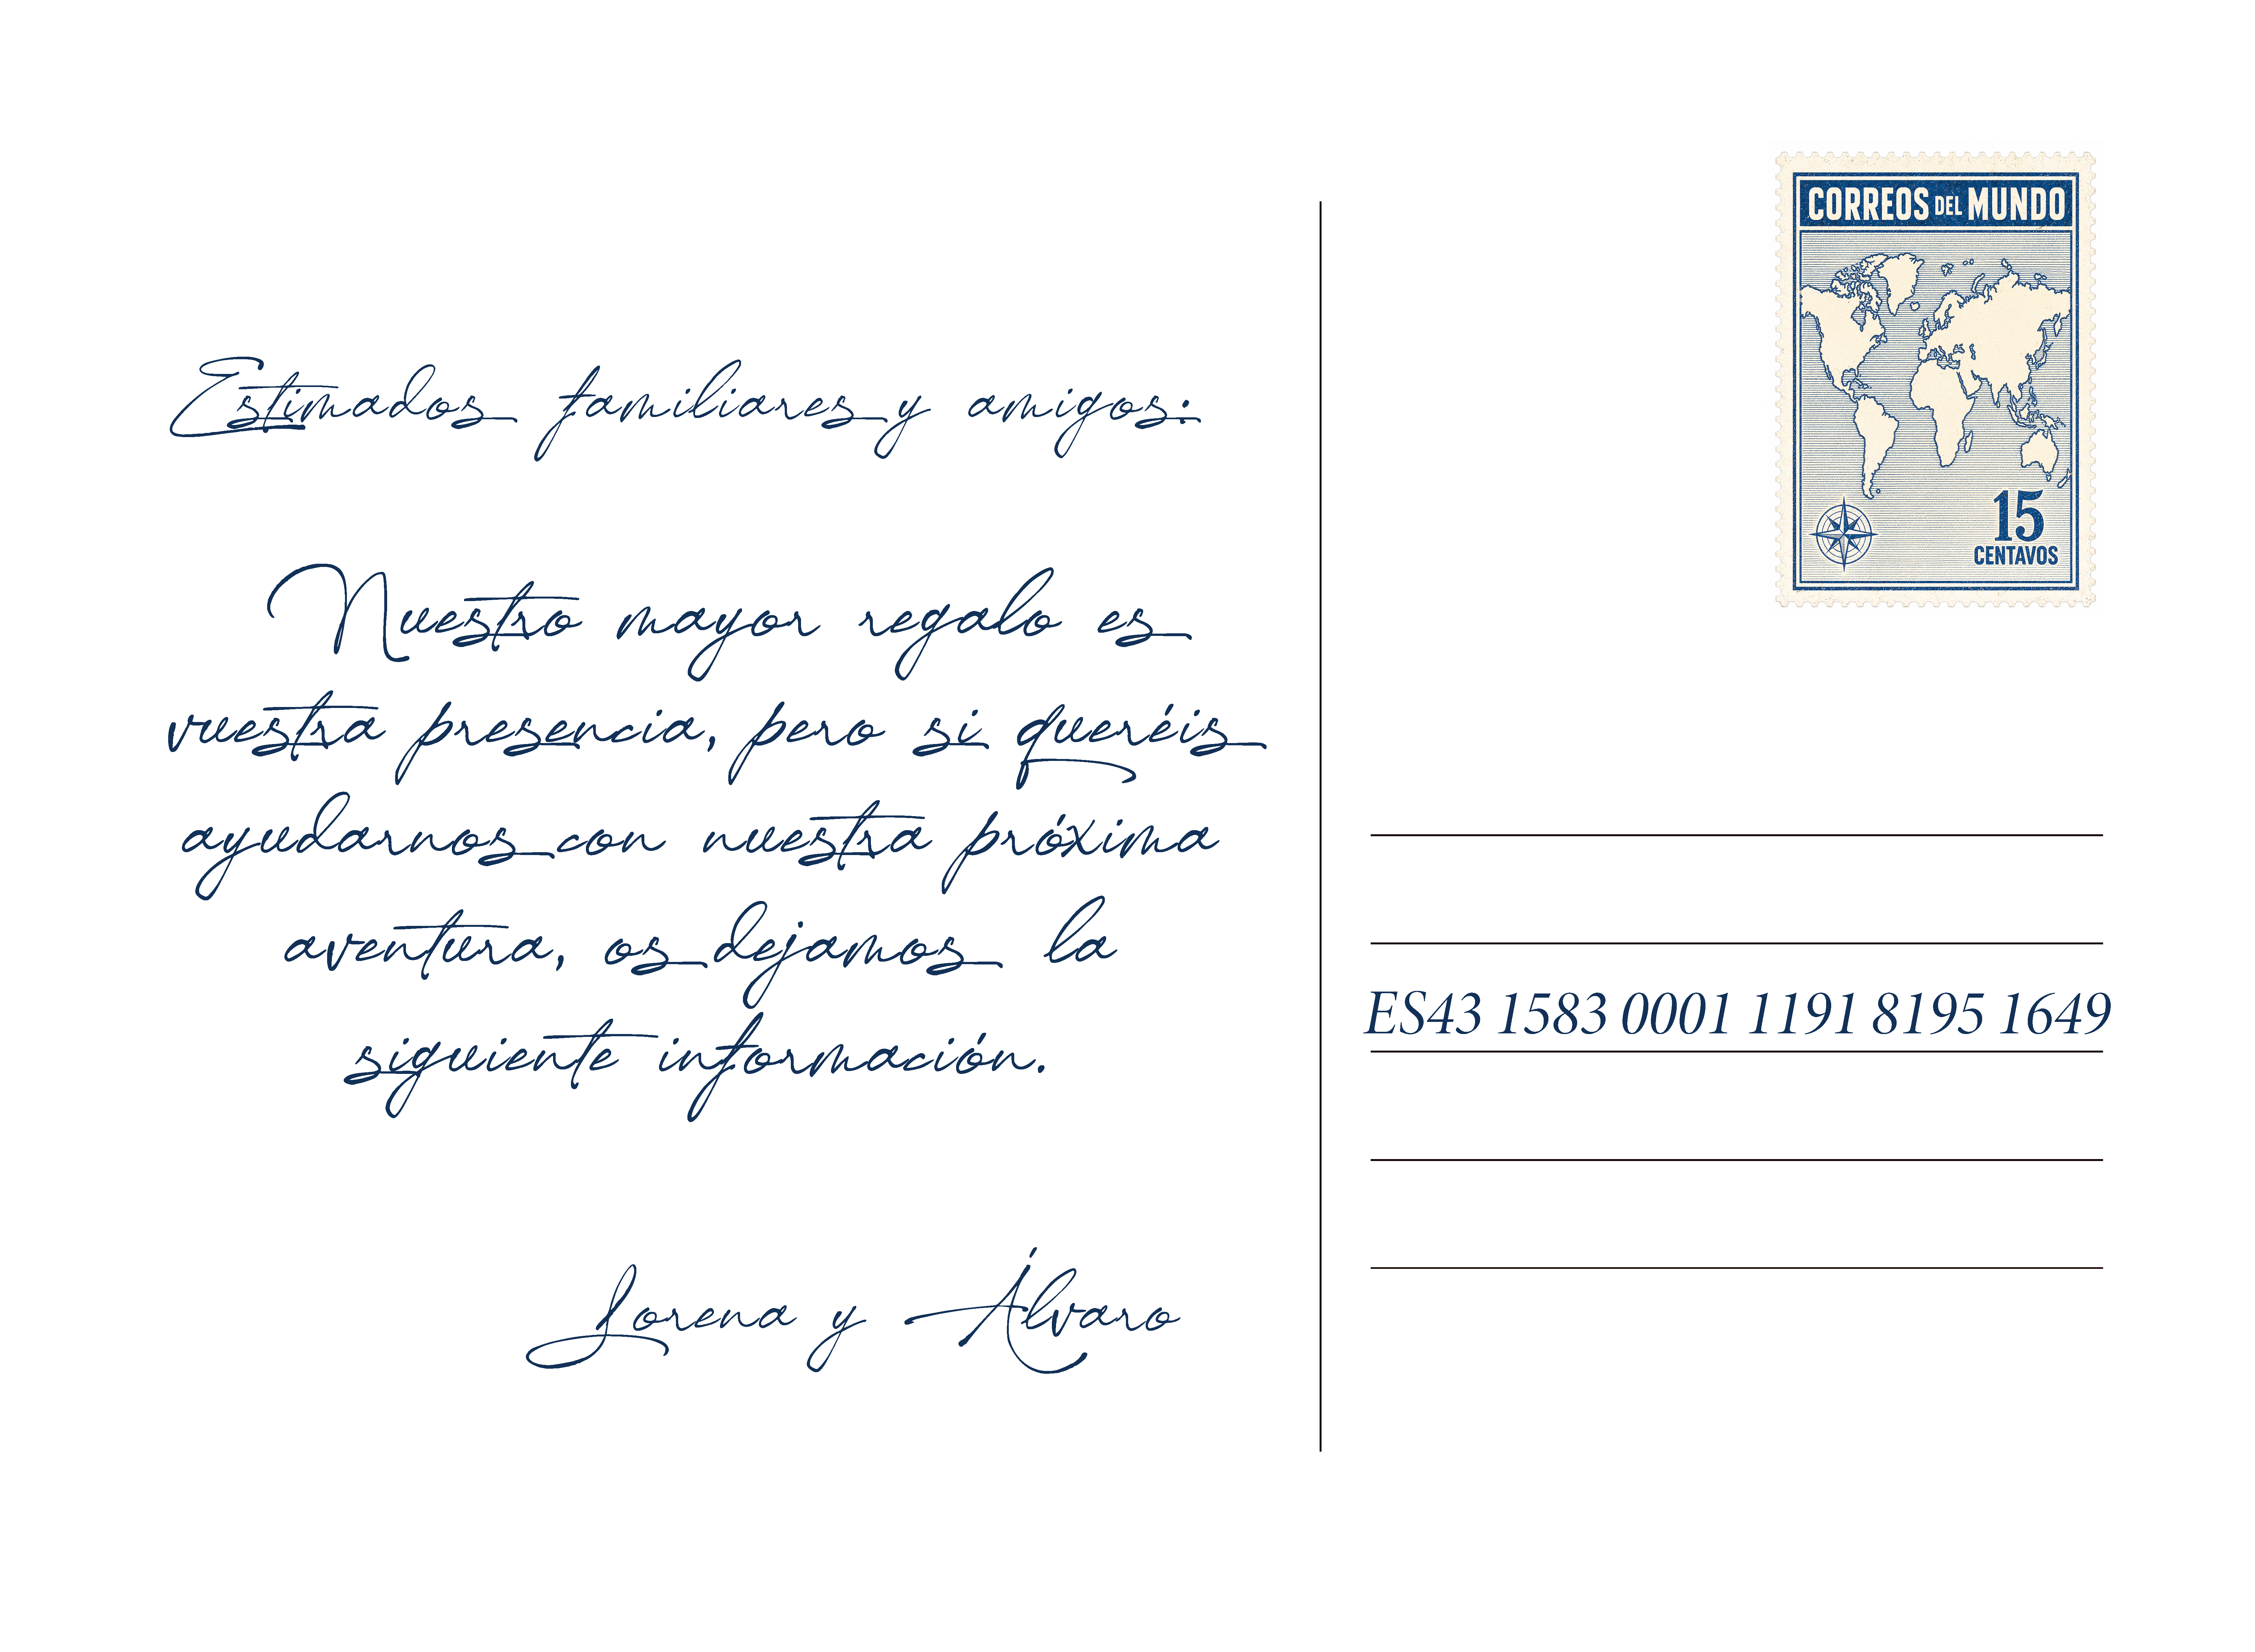 Estimados familiares y amigos:
Nuestro mayor regalo es
vuestra presencia, pero si queréis
ayudarnos con nuestra próxima
aventura, os dejamos la
siguiente información.
Lorena y Álvaro
CORREOS DEL MUNDO
15
CENTAVOS
ES43 1583 0001 1191 8195 1649